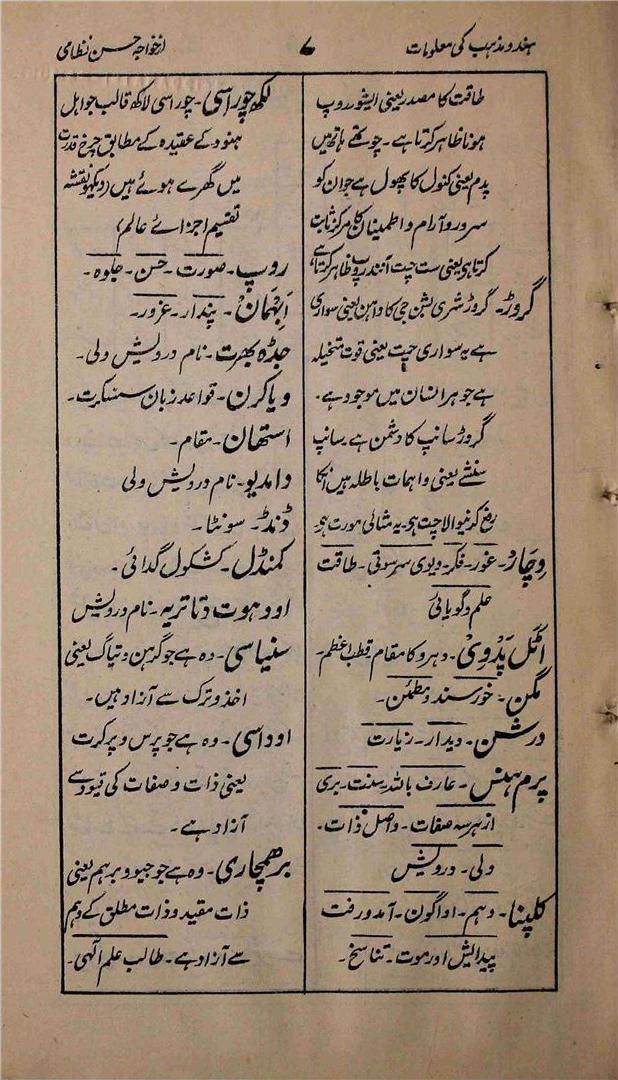 ہندو مذہب کی معلومات
۷
از خواجہ حسن نظامی
طاقت کا مصدر یعنی ایشور روپ
ہونا ظاہر کرتا ہے۔ چوتھے ہاتھ میں
پدم یعنی کنول کا پھول ہے جو ان کو
سرور و آرام و اطمینان کا مرکز ثابت
کرتا ہی یعنی ست چت آنند روپ ظاہر کرتا ہے
گروڑ۔ گروڑ شری بشن جی کا واہن یعنی سواری
ہے یہ سواری چت یعنی قوت متخیلہ
ہے جو ہر انسان میں موجود ہے۔
گروڑ سانپ کا دشمن ہے سانپ
سنشے یعنی واہمات باطلہ ہیں انکا
رفع کرنیوالا چت ہی۔ یہ مثالی مورت ہی
وِچار۔ غور۔ فکر۔ دیوی سرسوتی۔ طاقت
علم و گویائی
اٹل پَدوِی۔ دہرو کا مقام قطب اعظم۔
مگن۔ خورسند و مطمئن۔
درشن۔ دیدار۔ زیارت
پرم ہنس۔ عارف باللہ سنت۔ بری
از ہر سہ صفات۔ واصل ذات۔
ولی۔ درویش
کلپنا۔ وہم۔ اواگون۔ آمد و رفت
پیدایش اور موت۔ تناسخ۔
لکھ چوراسی۔ چوراسی لاکھ قالب جو اہل
ہنود کے عقیدہ کے مطابق چرخ قدرت
میں گھرے ہوئے ہیں (دیکھو نقشہ
تقسیم اجزائے عالم)
روپ۔ صورت۔ حسن۔ جلوہ۔
اَبھمان۔ پندار۔ غرور۔
جڈہ بھرت۔ نام درویش ولی۔
ویاکرن۔ قواعد زبان سنسکرت۔
استھان۔ مقام۔
وامدیو۔ نام درویش ولی
ڈنڈ۔ سونٹا۔
کمنڈل۔ کشکول گدائی۔
اودہوت دتاتریہ۔ نام درویش
سنیاسی۔ وہ ہے جو گرہن و تیاگ یعنی
اخذ و ترک سے آزاد ہیں۔
اوداسی۔ وہ ہے جو پرس و پرکرت
یعنی ذات و صفات کی قیود سے
آزاد ہے۔
برھمچاری۔ وہ ہے جو جیو و برہم یعنی
ذات مقید و ذات مطلق کے وہم
سے آزاد ہے۔ طالب علم الٰہی۔